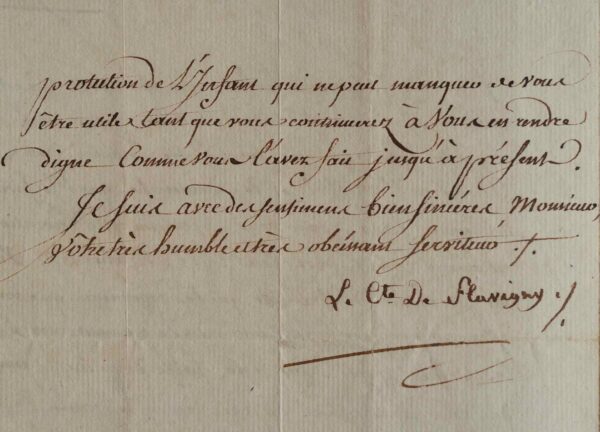 protection de L'Infant qui ne peut manquer de vous
être utile tant que vous continuerez à Vous en rendre
digne Comme vous l'avez fait jusqu'à présent.
Je suis avec des sentimens bien sincéres Monsieur,
Vôtre très humble et très obéissant serviteur ./.
Le Cte De Flavigny ./.